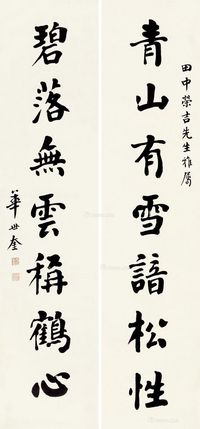 田中榮吉先生雅屬
青山有雪諳松性
碧落無雲稱鶴心
華世奎